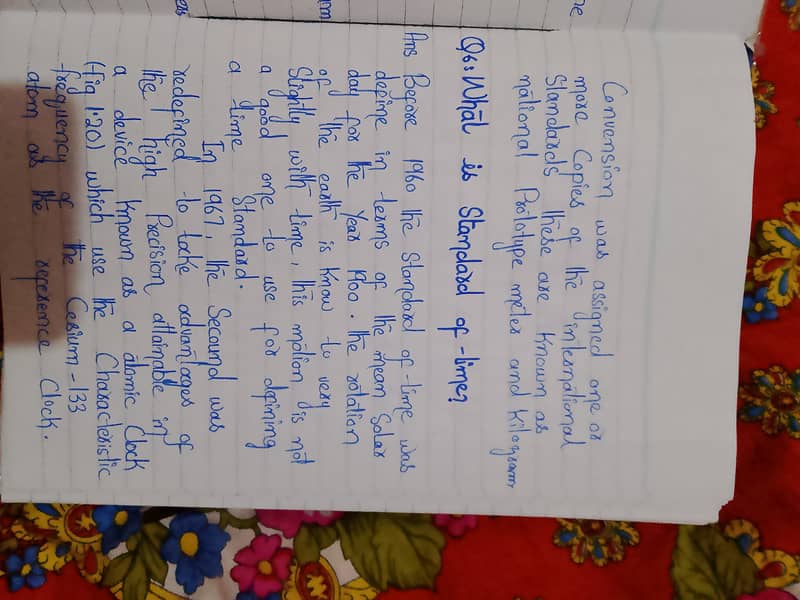 Convension was assigned one or
more Copies of the international
Standards these are known as
national Prototype meter and Kilogram,
Q6: What is Standard of time?
Ans Before 1960 the Standard of time was
define in terms of the mean Solar
day for the Year 1900. the rotation
of the earth is know to very
Slightly with time, this motion is not
a good one to use for defining
a time Standard.
In 1967 the Secound was
redefined to take advantages of
the high Precision attainable in
a device known as a atomic Clock
(fig 1.20) which use the Characteristic
frequency of the Cesium - 133
atom as the reference Clock.